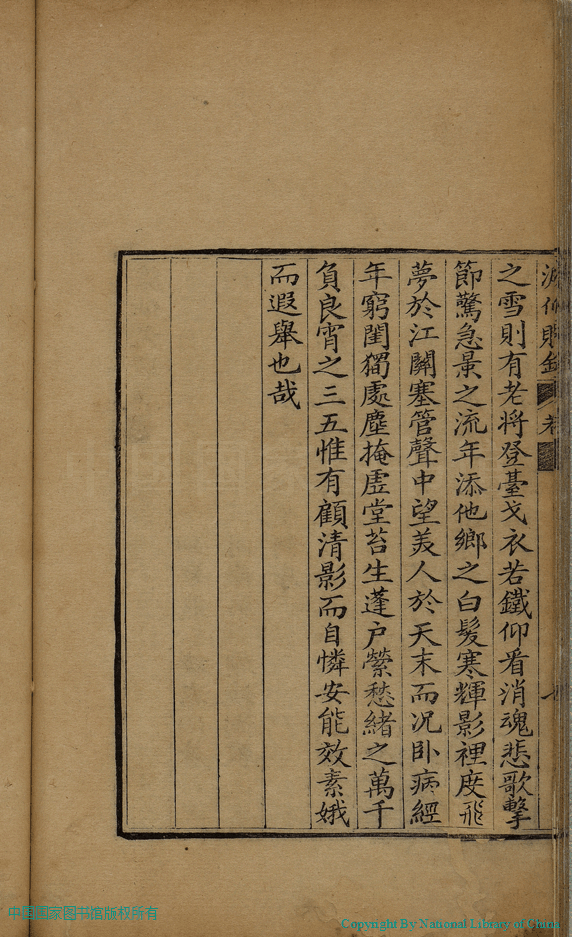 之雪則有老將登臺戈衣若鐵仰看消魂悲歌擊
節驚急景之流年添他鄉之白髮寒輝影裡度飛
夢於江關塞管聲中望美人於天末而况卧病經
年窮閨獨處塵掩虛堂苔生蓬户縈愁緒之萬千
負良宵之三五惟有顧清影而自憐安能效素娥
而遐舉也哉
中国国家图书馆版权所有
Copyright By National Library of China